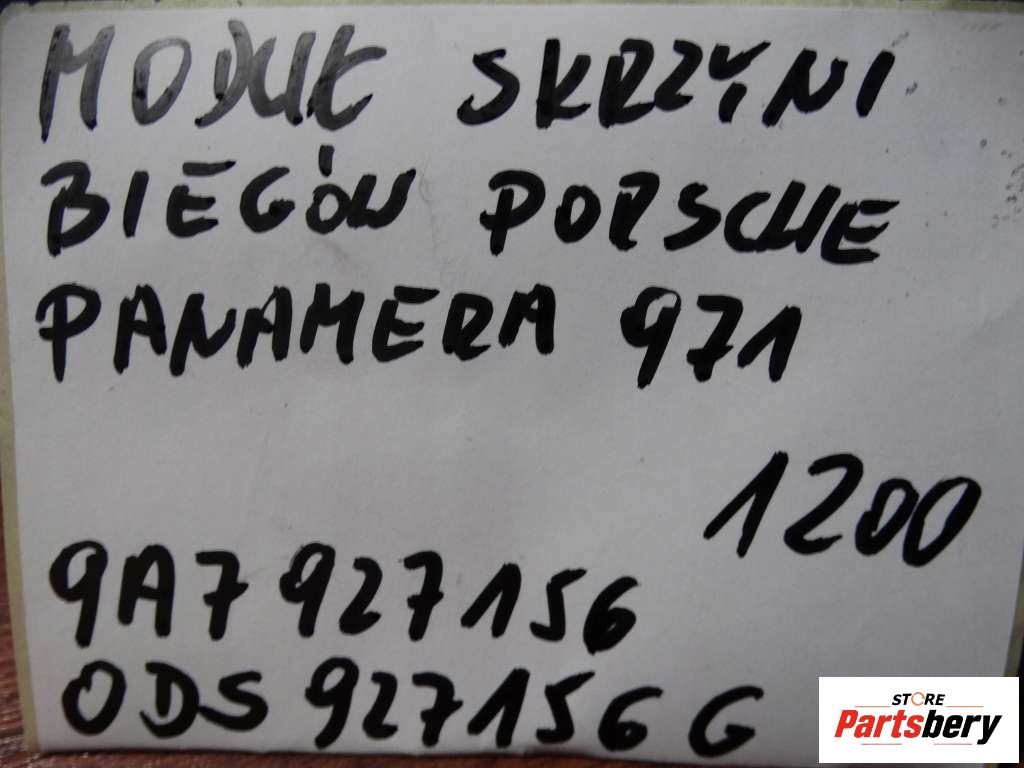 MODUŁ SKRZYNI
BIEGÓW PORSCHE
PANAMERA 971
1200
9A7 927156
0DS 927156 G
STORE
Partsbery